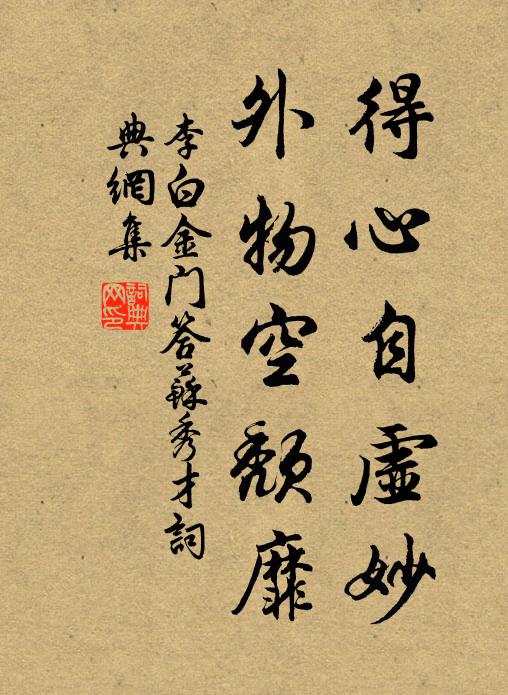 得心自虛妙
外物空頹靡
李白金門答蘇秀才詞
典網集
詞典網印